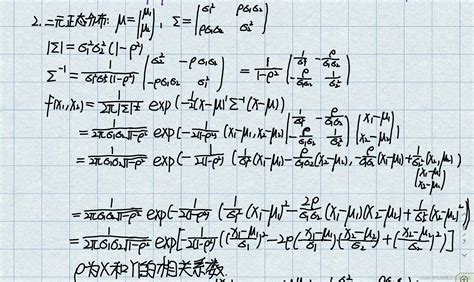 2. 二元正态分布: μ=|μ₁ μ₂|, Σ=|σ₁² ρσ₁σ₂ ρσ₁σ₂ σ₂²|
|Σ|=σ₁²σ₂²(1-ρ²)
Σ⁻¹ = 1/(σ₁²σ₂²(1-ρ²)) |σ₂² -ρσ₁σ₂ -ρσ₁σ₂ σ₁²| = 1/(1-ρ²) |1/σ₁² -ρ/(σ₁σ₂) -ρ/(σ₁σ₂) 1/σ₂²|
f(x₁,x₂) = 1/(2π|Σ|^½) exp(-½(x-μ)'Σ⁻¹(x-μ))
= 1/(2πσ₁σ₂√(1-ρ²)) exp(-1/(2(1-ρ²)) (x₁-μ₁, x₂-μ₂) |1/σ₁² -ρ/(σ₁σ₂) -ρ/(σ₁σ₂) 1/σ₂²| |x₁-μ₁ x₂-μ₂|)
= 1/(2πσ₁σ₂√(1-ρ²)) exp(-1/(2(1-ρ²)) (1/σ₁²(x₁-μ₁)-ρ/(σ₁σ₂)(x₂-μ₂), -ρ/(σ₁σ₂)(x₁-μ₁)+1/σ₂²(x₂-μ₂))
(x₁-μ₁ x₂-μ₂)
= 1/(2πσ₁σ₂√(1-ρ²)) exp(-1/(2(1-ρ²)) (1/σ₁²(x₁-μ₁)²-2ρ/(σ₁σ₂)(x₁-μ₁)(x₂-μ₂)+1/σ₂²(x₂-μ₂)²)
= 1/(2πσ₁σ₂√(1-ρ²)) exp[-1/(2(1-ρ²)) ((x₁-μ₁/σ₁)²-2ρ(x₁-μ₁/σ₁)(x₂-μ₂/σ₂)+(x₂-μ₂/σ₂)²)]
ρ为X和Y的相关系数.